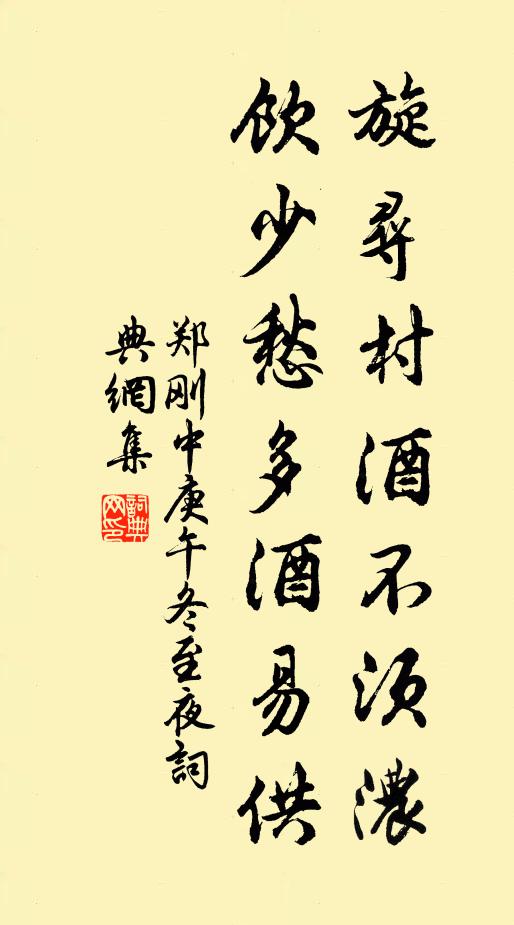 旋尋村酒不須濃
飲少愁多酒易供
郑刚中庚午冬至夜詞
典網集
詞典
网印